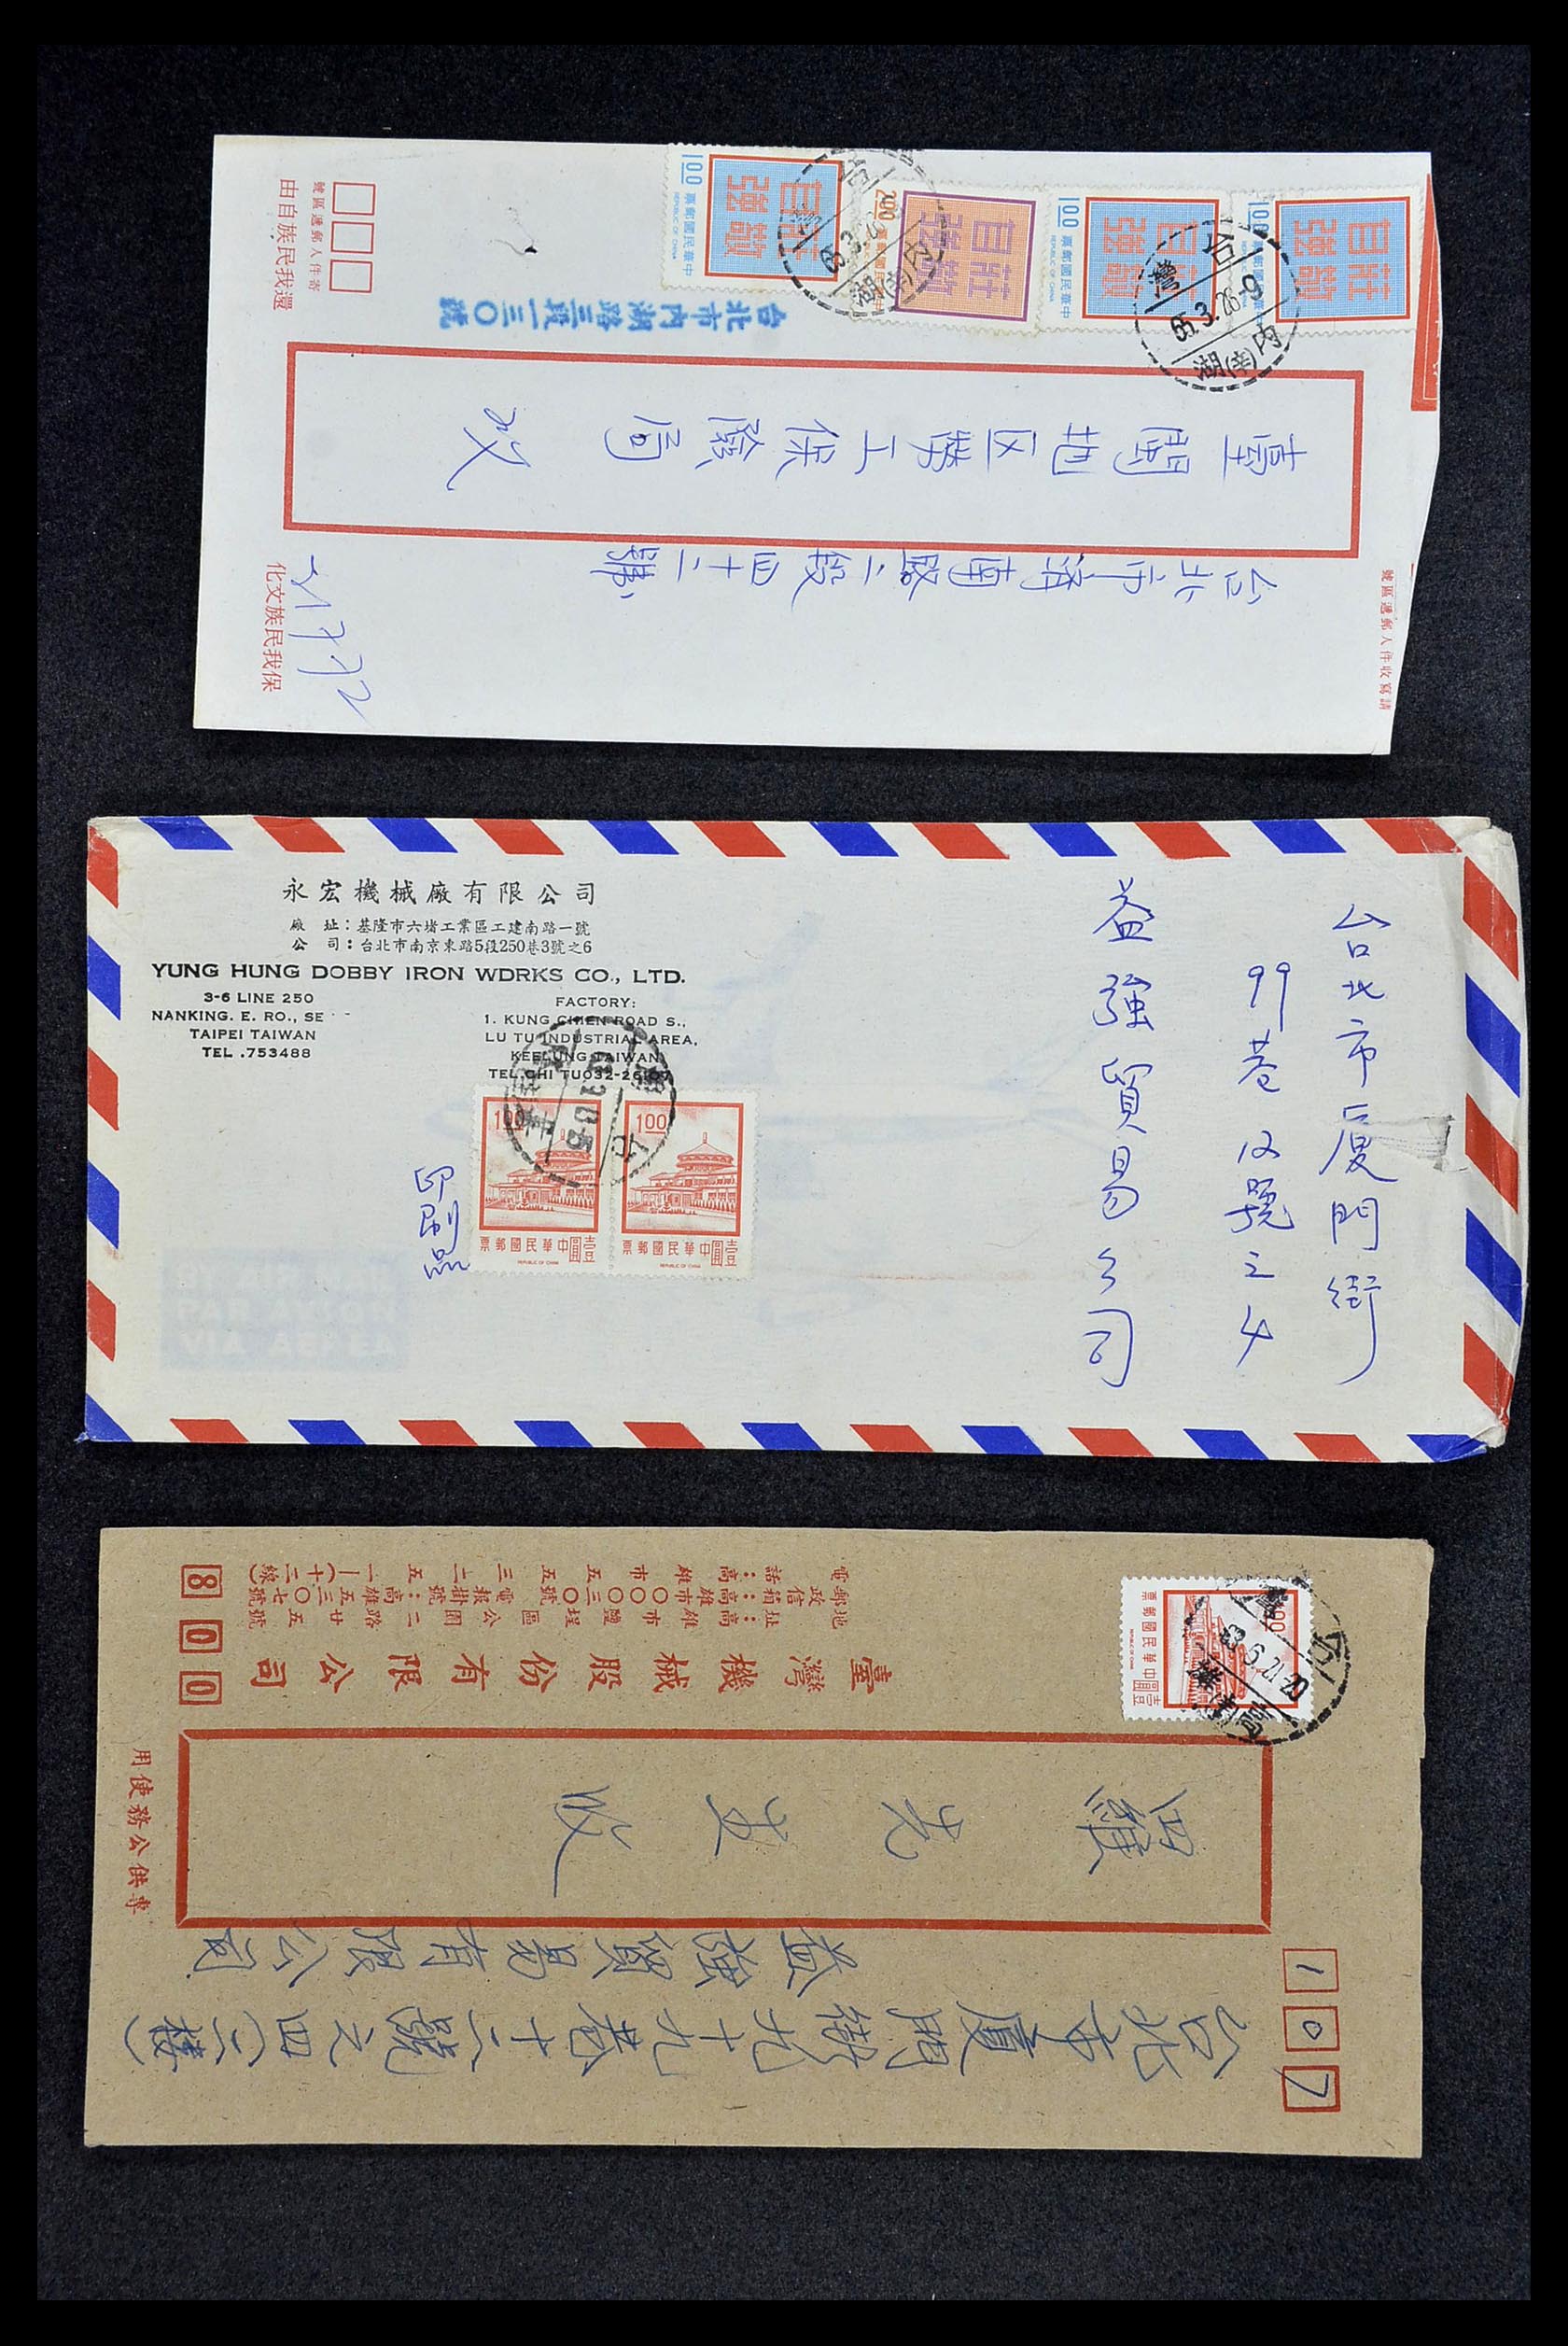 號區遞郵人件寄
還我民族自由
1.00
莊敬自強
中華民國郵票
REPUBLIC OF CHINA
2.00
莊敬自強
1.00
莊敬自強
中華民國郵票
1.00
莊敬自強
台灣
65.3.26-9
內湖(南)
台北市內湖路三段一三〇號
臺閩地区勞工保險局 收
台北市濟南路二段四十二號
請寫收件人郵遞區號
保我民族文化
永宏機械廠有限公司
廠 址:基隆市六堵工業區工建南路一號
公 司:台北市南京東路5段250巷3號之6
YUNG HUNG DOBBY IRON WDRKS CO., LTD.
3-6 LINE 250
NANKING. E. RO., SE
TAIPEI TAIWAN
TEL .753488
FACTORY:
1. KUNG CHIEN ROAD S.,
LU TU INDUSTRIAL AREA,
KEELUNG TAIWAN
1.00
中華民國郵票
壹圓
REPUBLIC OF CHINA
1.00
中華民國郵票
壹圓
REPUBLIC OF CHINA
印刷品
台北市厦門街
99巷12號之4
益強貿易公司
PAR AVION
地址:高雄市鹽埕區公園二路廿五號
臺灣機械股份有限公司
800
中華民國郵票
壹圓
REPUBLIC OF CHINA
63.6.21-20
專供公務使用
先生 收
益強貿易有限公司
台北市廈門街九十九巷十二號之四(二樓)
107